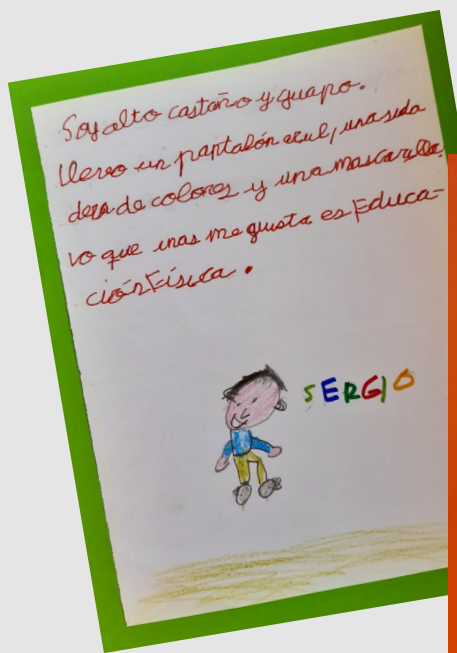 Soy alto castaño y guapo.
Llevo un pantalón azul, una suda
dera de colores y una mascarilla.
lo que mas me gusta es Educa-
ción Física.
SERGIO